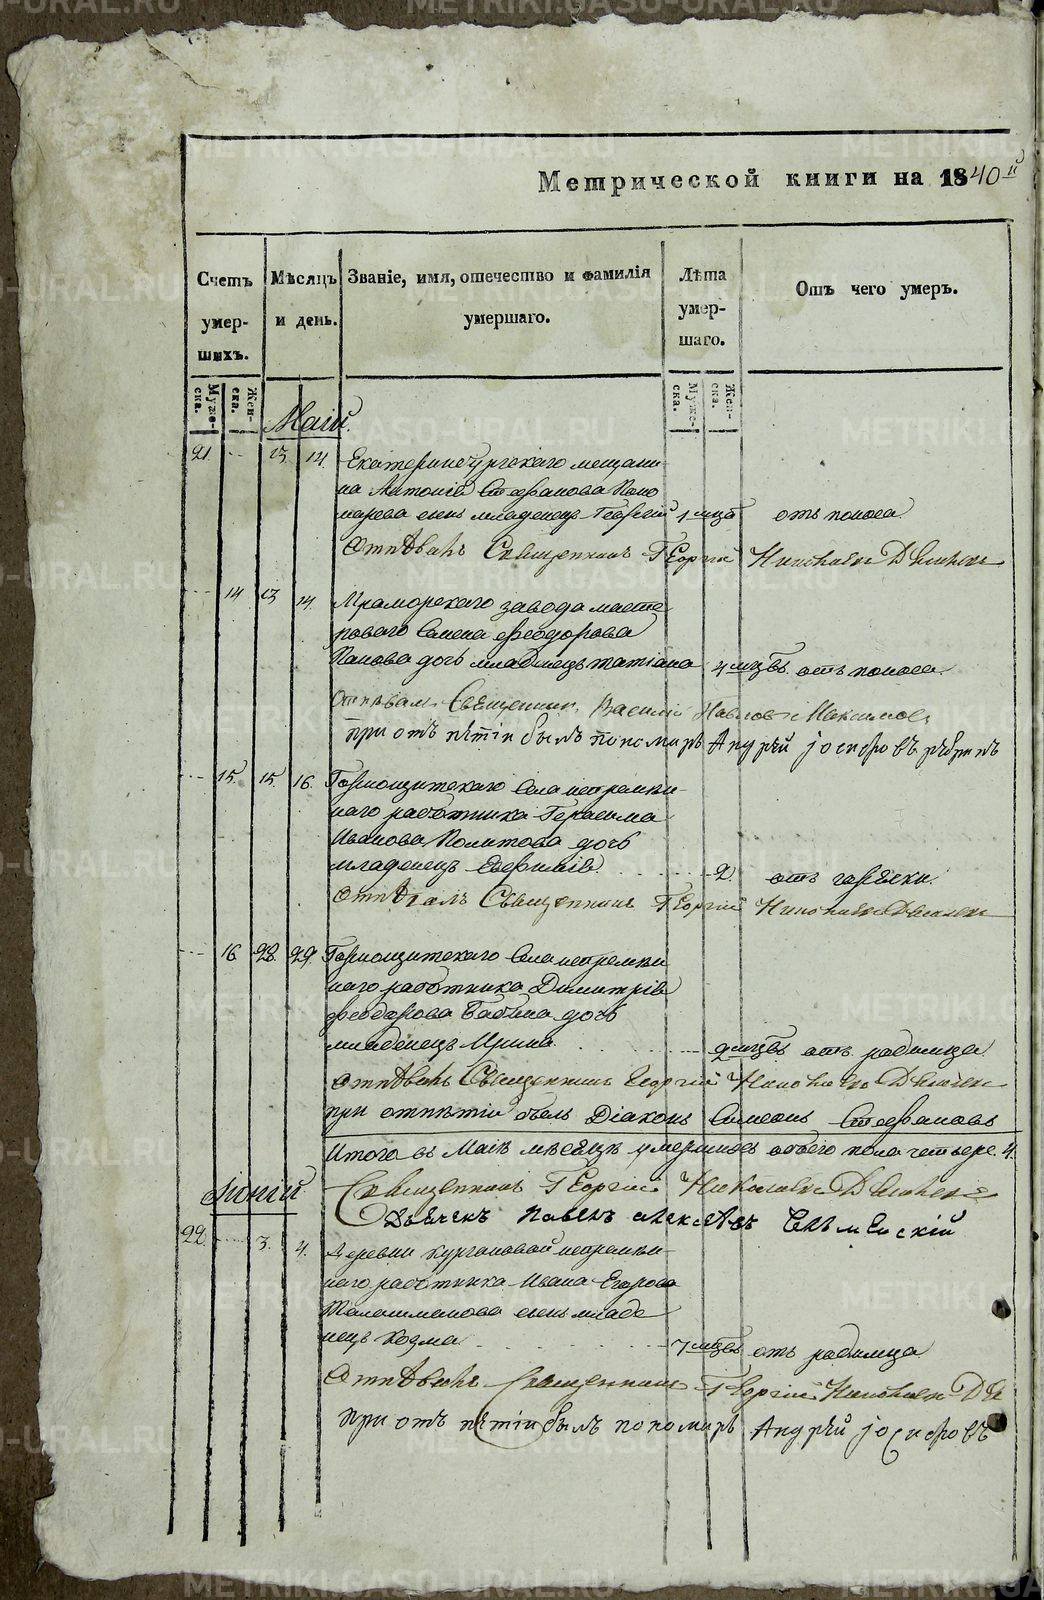 Метрической книги на 1840й
Счетъ умершихъ.
Мѣсяцъ и день.
Званіе, имя, отечество и фамилія умершаго.
Лѣта умершаго.
Отъ чего умеръ.
Мужеска. Женска. Мужеска. Женска.
Маій.
21 13. 14. Екатеринбургскаго мещани
на Антонія Стефанова Поно
марева сынъ младенецъ Георгій 1 мцъ отъ поноса
Отпѣвалъ Священникъ Георгій Николаевъ
14 13 14. Мраморскаго завода масте
роваго Семена Феодорова
Попова дочь младенецъ татіана 4 мцъ отъ поноса
Отпѣвалъ Священникъ Василій Павловъ Максимовъ
при отъ пѣтіи былъ пономарь Андрѣй іосифовъ
15. 15. 16. Горнощитскаго Села непремѣн
наго работника Герасима
Иванова Политова дочь
младенецъ Евфимія 2. отъ горячки.
Отпѣвалъ Священникъ Георгій Николаевъ
16. 28. 29. Горнощитскаго Села непремѣн
наго работника Димитрія
Феодорова Бабина дочь
младенецъ Ирина 2 мцъ отъ родимца
Отпѣвалъ Священникъ Георгій Николаевъ
при отпѣтіи былъ Діаконъ Симеонъ Стефановъ
Итого въ Маіѣ мѣсяцѣ умершихъ обоего пола четверо. 4.
Іюній
Священникъ Георгій Николаевъ
Дьячекъ Павелъ алексѣевъ
22. 3. 4. Деревни Кургановой непремѣн
наго работника Ивана Егорова
сынъ младе
нецъ Козма 7 мцъ отъ родимца
Отпѣвалъ Священникъ Георгій Николаевъ
При отъ пѣтіи былъ пономарь Андрѣй іосифовъ
METRIKI.GASO-URAL.RU